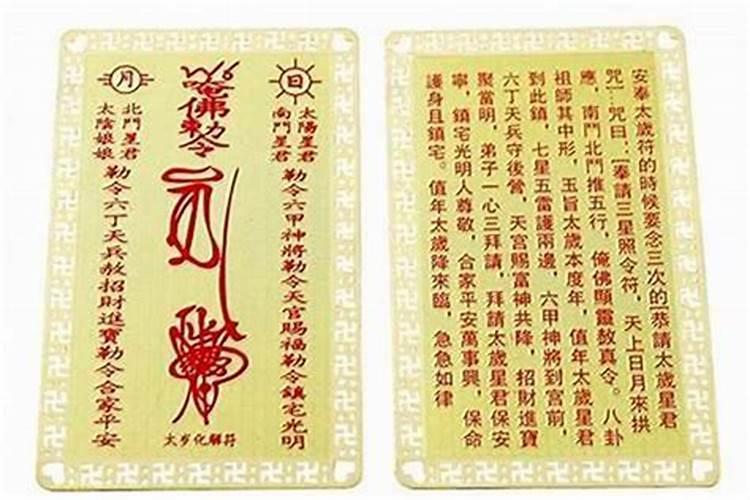 日
太陽星君
南鬥星君
勒令六甲神將勒令天官賜福勒令鎮宅光明
唵佛勅令
太岁化解符
月
北鬥星君
太陰娘娘
勒令六丁天兵敖招財進寶勒令合家平安
安奉太歲符的時候要念三次的[恭請太歲星君
咒]:咒曰:[奉請三星照令符,天上日月來拱
應,南鬥北鬥推五行,俺佛顯靈敖真令。八卦
祖師其中形,玉旨太歲本度年,值年太歲星君
到此鎮,七星五雷護兩邊,六甲神將到宮前,
六丁天兵守後營,天宮賜富神共降,招財進寶
聚當明,弟子一心三拜請,拜請太歲星君保安
寧,鎮宅光明人尊敬,合家平安萬事興,保命
護身且鎮宅。值年太歲降來臨,急急如律